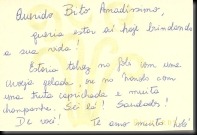 Querido Beto Amadíssimo,
queria estar aí hoje brindando
a sua vida!
Estaria talvez no fole com uma
cerveja gelada, ou no bando com
uma truta caprichada e muita
champanhe. Sei lá! Saudades!
De você! Te amo muito